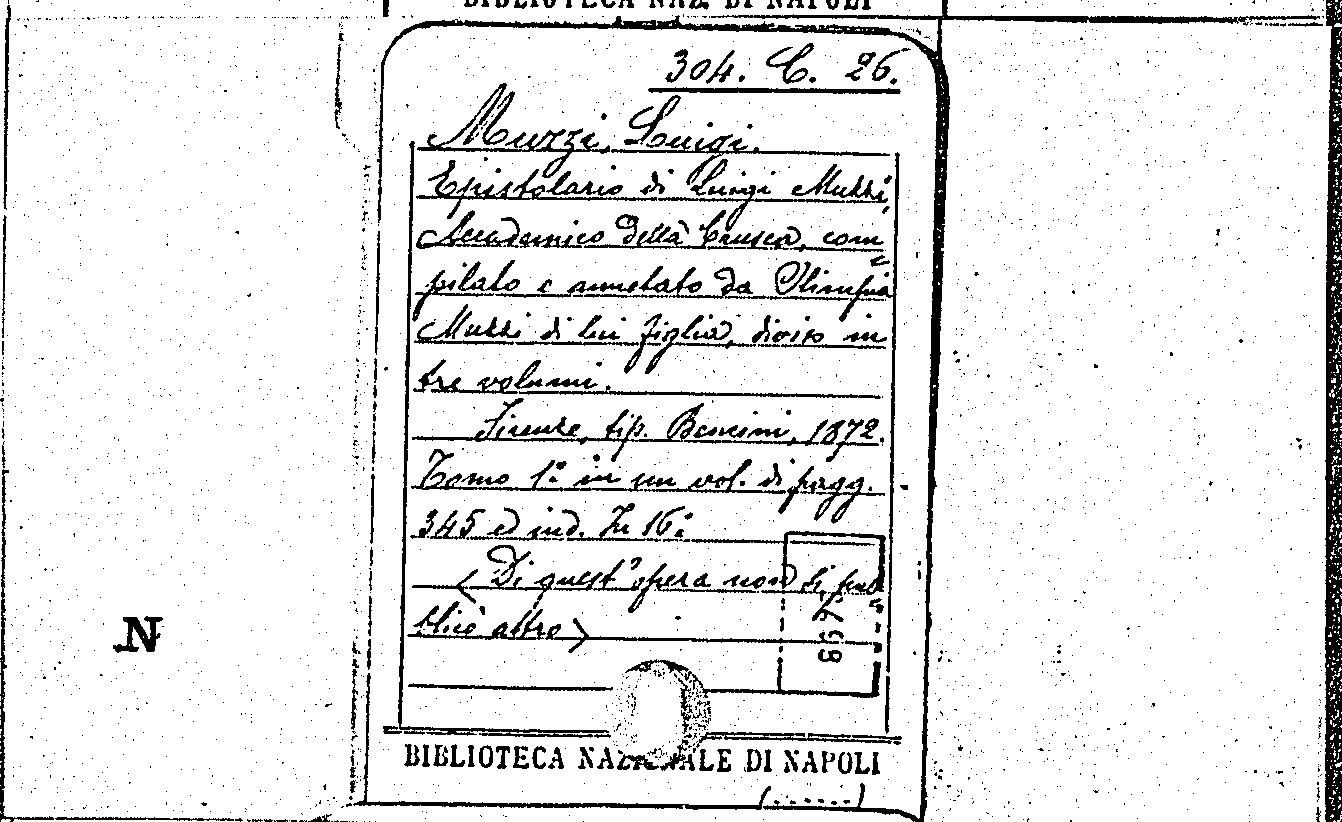 BIBLIOTECA NAZ. DI NAPOLI
304. C. 26.
Muzzi, Luigi.
Epistolario di Luigi Muzzi,
Accademico della Crusca, com
pilato e annotato da Olimpia
Muzzi di lui figlia, diviso in
tre volumi.
Firenze, tip. Bencini, 1872.
Tomo 1º in un vol. di pagg.
345 ed ind. In 16º
(Di quest'opera non si pub
blicò altro)
N
BIBLIOTECA NAZIONALE DI NAPOLI
(......)